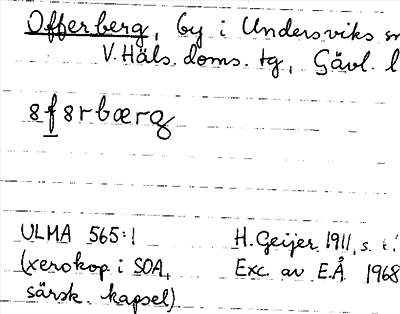 Offerberg, by i Undersviks sn
V. Häls. doms. tg, Gävl. l
ULMA 565:1 H. Geijer 1911, s.
(xerokop. i SOA, Exc. av E.Å 1968
särsk. kapsel)